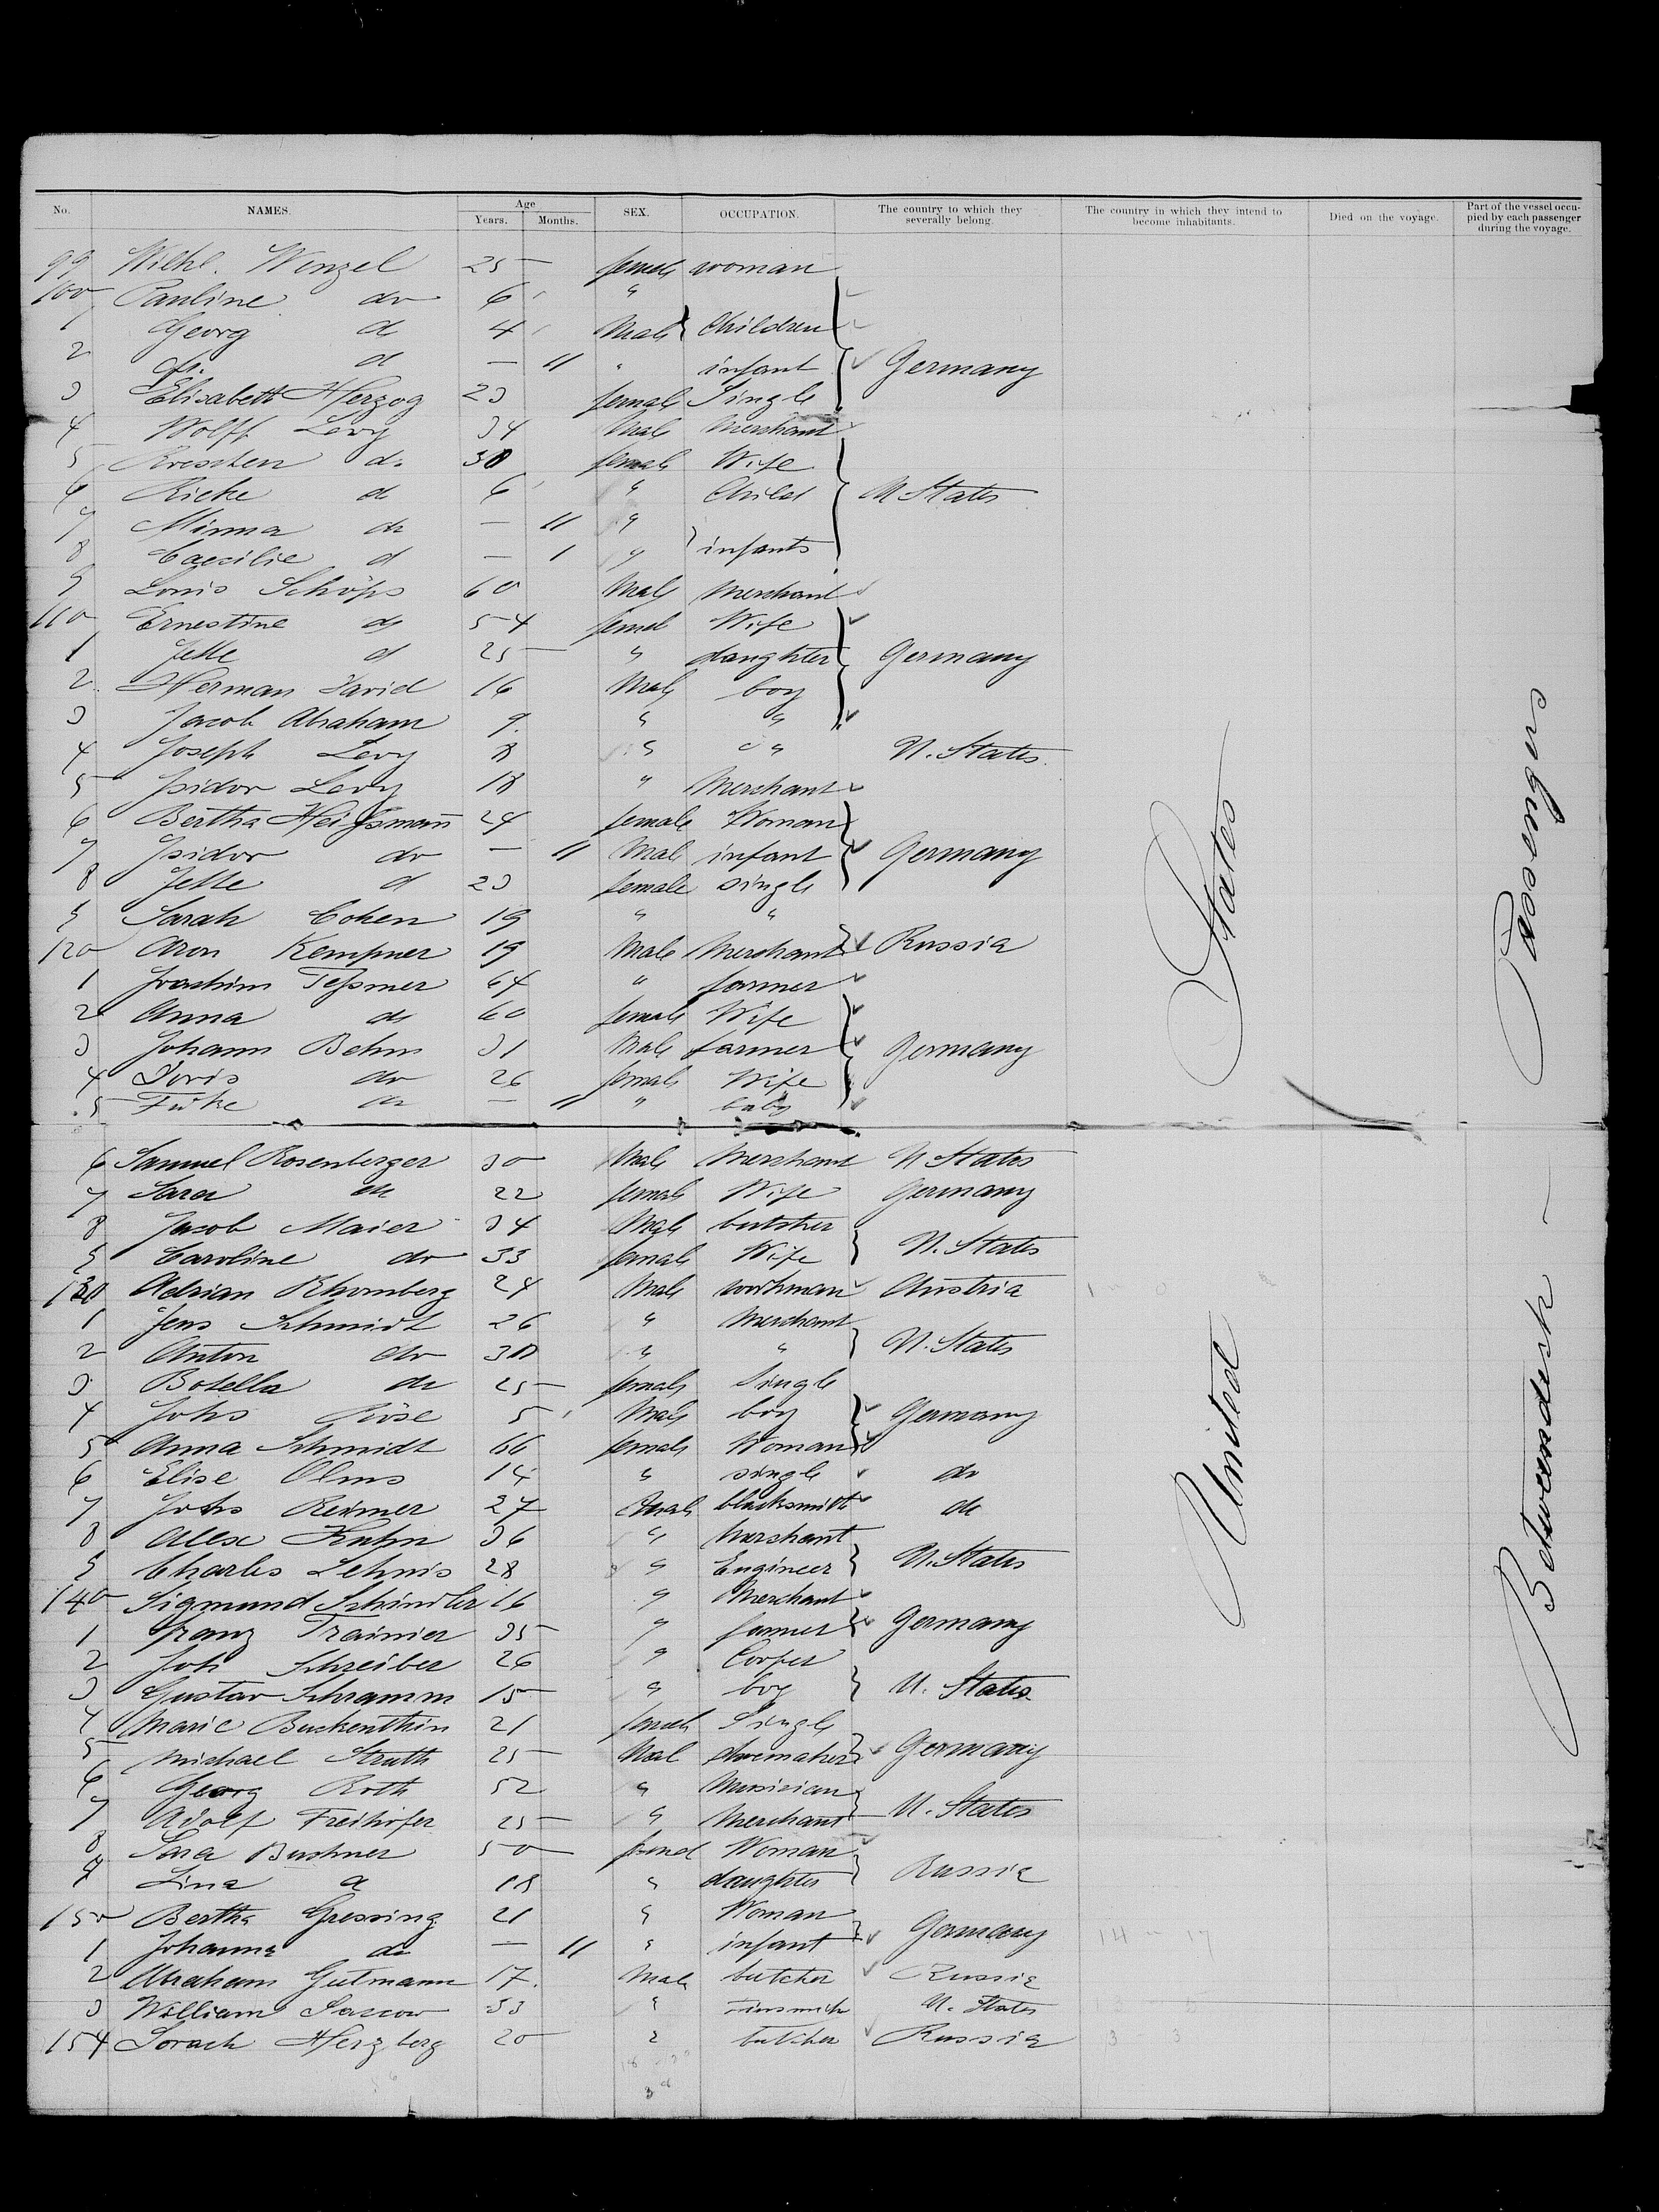 No. NAMES. Age Years. Months. SEX. OCCUPATION. The country to which they severally belong. The country in which they intend to become inhabitants. Died on the voyage. Part of the vessel occupied by each passenger during the voyage.
99 Wilhl. Wenzel 25 female woman
100 Pauline do 6 "
1 Georg d 4 Male } Children
2 d — 11 " infant Germany
3 Elisabeth Herzog 23 female Single
4 Wolff Levy 34 Male Merchant
5 Roeschen do 30 female Wife
6 Ricke d 6 " Child U States
7 Minna do — 11 "
8 Caecilie d — 1 " } infants
9 Louis Schöps 60 Male Merchant
110 Ernestine do 54 femal Wife
1 Jette d 25 " daughter Germany
2 Herman David 16 Male boy
3 Jacob Abraham 9 " "
4 Joseph Levy 8 " " U. States
5 Isidor Levy 18 " Merchant
6 Bertha Heißmann 24 female Woman
7 Isidor do — 11 Male infant Germany
8 Jette d 23 female single
9 Sarah Cohen 19 " "
120 Aron Kempner 19 Male Merchant Russia
1 Joachim Teßmer 64 " farmer
2 Anna do 60 female Wife
3 Johann Behm 31 Male farmer Germany
4 Doris do 26 female Wife
5 do — 11 " baby
6 Samuel Rosenberger 30 Male Merchant U States
7 Sara do 22 female Wife Germany
8 Jacob Maier 34 Male butcher
9 Caroline do 33 female Wife U. States
130 Adrian Rhomberg 24 Male workman Austria
1 Jens Schmidt 26 " Merchant
2 Anton do 30 " " U. States
3 Botella do 25 female Single
4 Johs Röse 5 Male boy Germany
5 Anna Schmidt 66 female Woman
6 Elise Olms 14 " single do
7 Johs Reimer 27 Male blacksmith do
8 Alex Kuhn 36 " Merchant
9 Charles Lehnis 28 " Engineer U. States
140 Sigmund Schindler 16 " Merchant
1 Franz Trainier 35 " farmer Germany
2 Joh Schreiber 26 " Cooper
3 Gustav Schramm 15 " boy U. States
4 Marie Buckenthin 21 female Single
5 Michael Struth 25 Male shoemaker Germany
6 Georg Roth 52 " Musician
7 Adolf Freihöfer 25 " Merchant U. States
8 Sara Buchner 50 femal Woman
9 Lina d 18 " daughter Russia
150 Bertha Gressing 21 " Woman
1 Johanna do — 11 " infant Germany
2 Abraham Gutmann 17 Male butcher Russia
3 William 33 " Tinsmith U. States
154 Sorach Herzberg 20 " butcher Russia
United States
Betweendeck Passengers